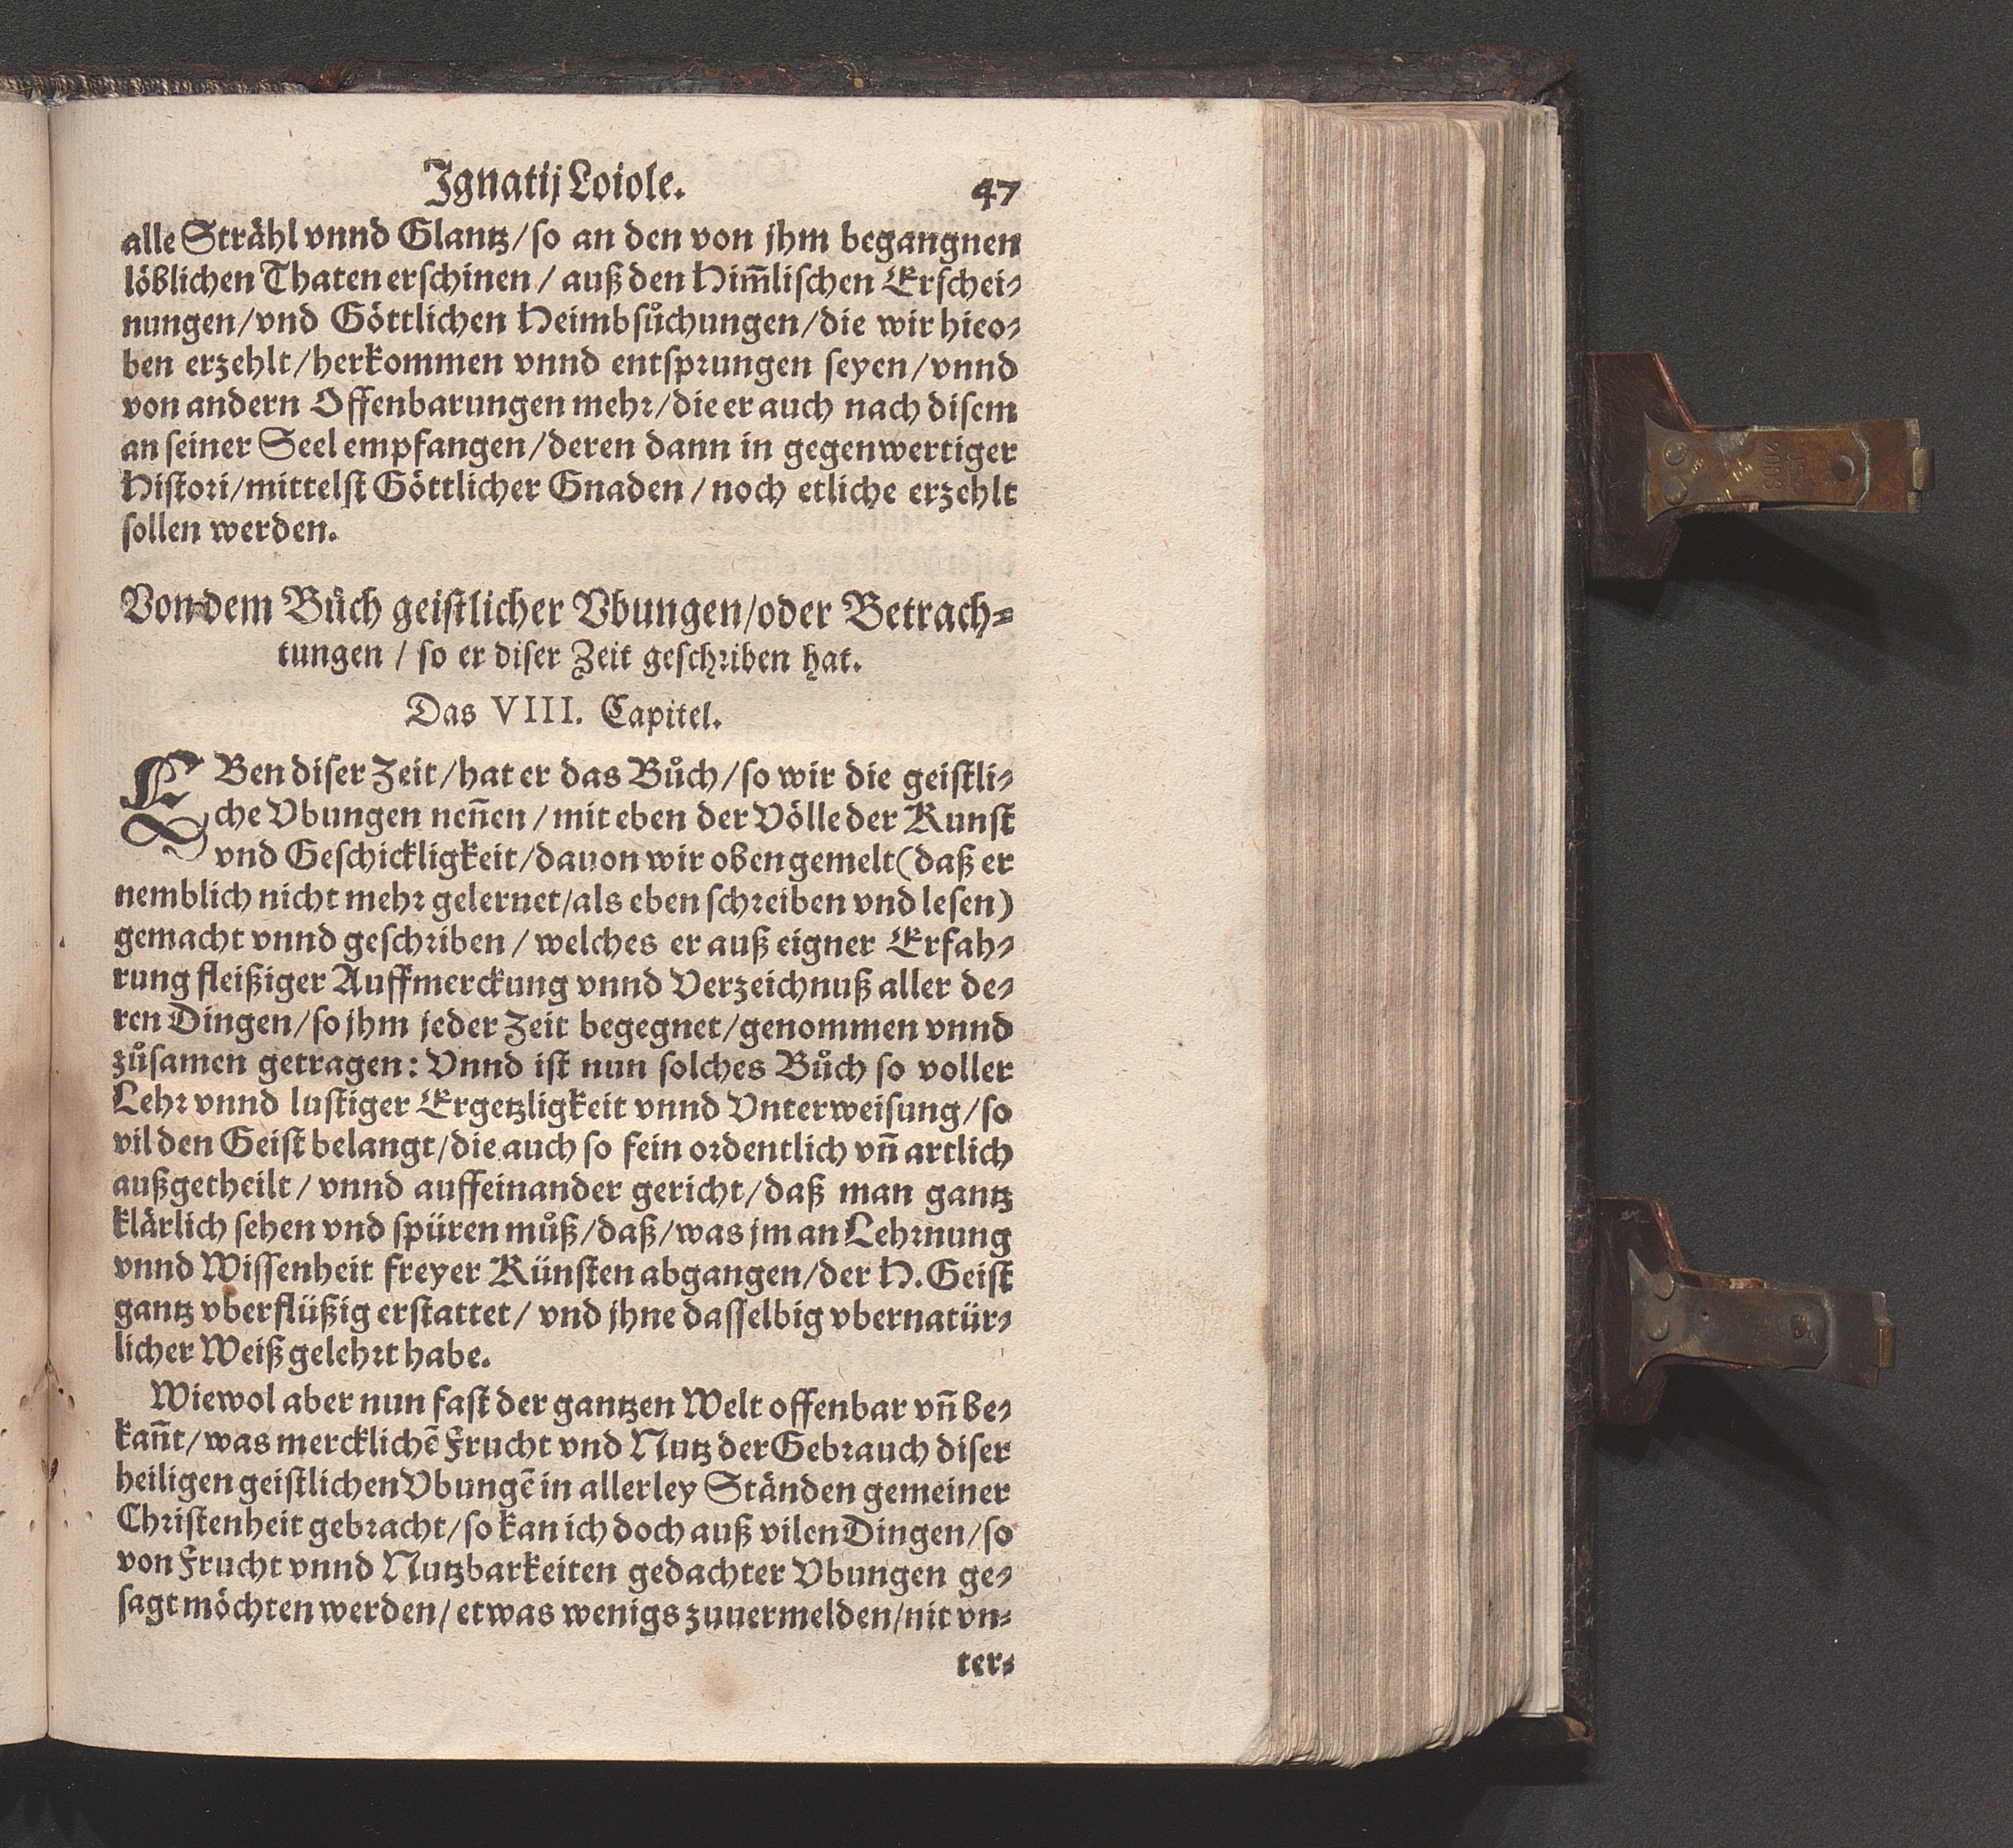 Ignatij Loiole. 47
alle Strähl vnnd Glantz/so an den von jhm begangnen
löblichen Thaten erschinen / auß den Him̃lischen Erschei-
nungen/vnd Göttlichen Heimbsůchungen/die wir hieo-
ben erzehlt/herkommen vnnd entsprungen seyen/vnnd
von andern Offenbarungen mehr/die er auch nach disem
an seiner Seel empfangen/deren dann in gegenwertiger
Histori/mittelst Göttlicher Gnaden/noch etliche erzehlt
sollen werden.
Von dem Bůch geistlicher Vbungen/oder Betrach-
tungen / so er diser Zeit geschriben hat.
Das VIII. Capitel.
EBen diser Zeit/hat er das Bůch/so wir die geistli-
che Vbungen neñen/mit eben der Völle der Kunst
vnd Geschickligkeit/dauon wir oben gemelt(daß er
nemblich nicht mehr gelernet/als eben schreiben vnd lesen)
gemacht vnnd geschriben/welches er auß eigner Erfah-
rung fleißiger Auffmerckung vnnd Verzeichnuß aller de-
ren Dingen/so jhm jeder Zeit begegnet/genommen vnnd
zůsamen getragen: Vnnd ist nun solches Bůch so voller
Lehr vnnd lustiger Ergetzligkeit vnnd Vnterweisung/so
vil den Geist belangt/die auch so fein ordentlich vñ artlich
außgetheilt/vnnd auffeinander gericht/daß man gantz
klärlich sehen vnd spüren můß/daß/was jm an Lehrnung
vnnd Wissenheit freyer Künsten abgangen/der H. Geist
gantz vberflüßig erstattet/vnd jhne dasselbig vbernatür-
licher Weiß gelehrt habe.
Wiewol aber nun fast der gantzen Welt offenbar vñ be-
kañt/was mercklichẽ Frucht vnd Nutz der Gebrauch diser
heiligen geistlichen Vbungẽ in allerley Ständen gemeiner
Christenheit gebracht/so kan ich doch auß vilen Dingen/so
von Frucht vnnd Nutzbarkeiten gedachter Vbungen ge-
sagt möchten werden/etwas wenigs zuuermelden/nit vn-
ter-